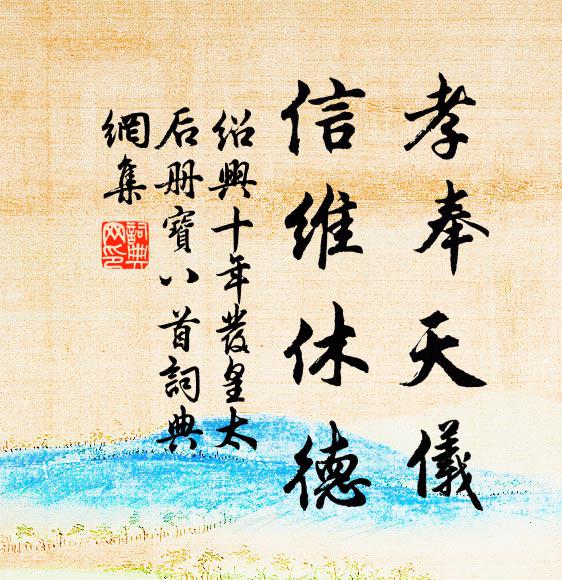 孝奉天儀
信維休德
紹興十年發皇太
后册寶八首詞典
網集
詞典
网印